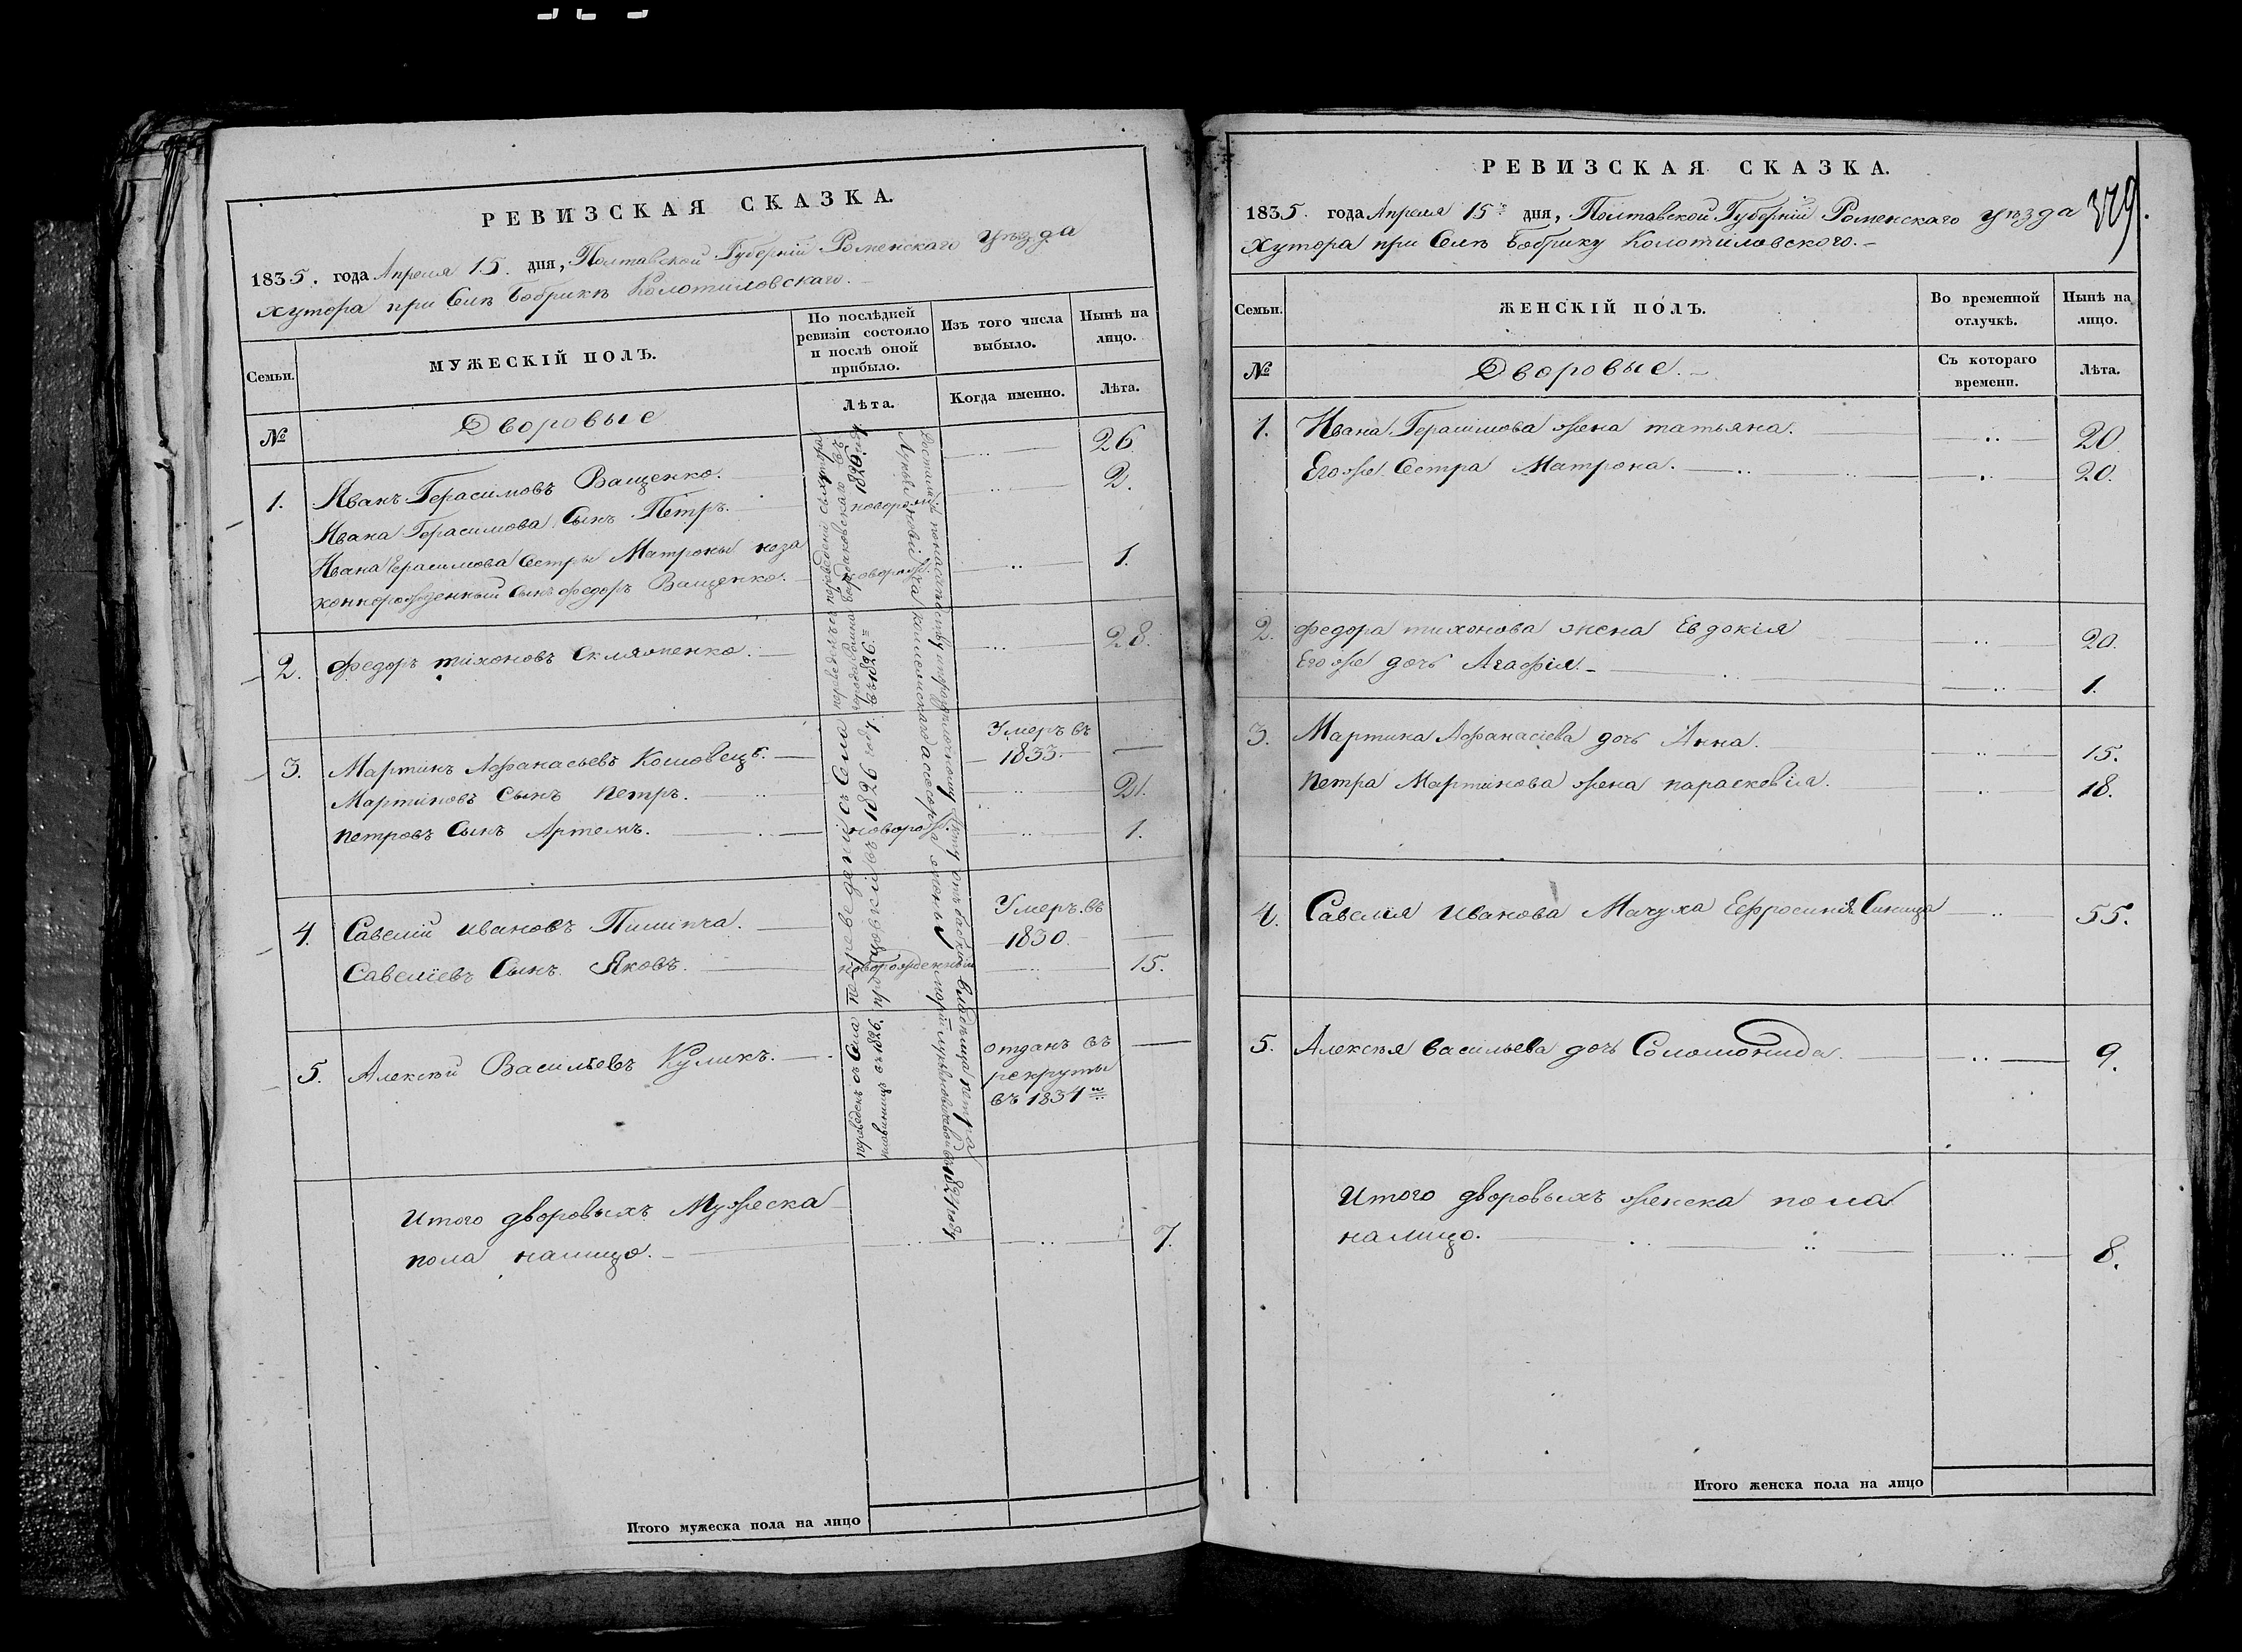 РЕВИЗСКАЯ СКАЗКА.
1835. года Апреля 15. дня, Полтавской Губерніи Роменскаго уѣзда
хутора при Селѣ Бобрикѣ Колотиловскаго.
Семьи.
МУЖЕСКІЙ ПОЛЪ.
По послѣдней ревизіи состояло и послѣ оной прибыло.
Изъ того числа выбыло.
Нынѣ на лицо.
№
Дворовые
Лѣта.
Когда именно.
Лѣта.
1. Иванъ Герасимовъ Ващенко. 26
Ивана Герасимова Сынъ Петръ. новорож. 2.
Ивана Герасимова Сестры Матроны неза
коннорожденный сынъ Федоръ Ващенко. новорож. 1.
2. Федоръ тихоновъ Скляренко. 28.
3. Мартинъ Афанасьевъ Кошовецъ. Умеръ въ 1833.
Мартиновъ Сынъ Петръ. 21.
Петровъ Сынъ Артемъ. новорож. 1.
4. Савелій Ивановъ Пилипча. Умеръ въ 1830.
Савеліевъ Сынъ Яковъ. новорожденный 15.
5. Алексѣй Васильевъ Куликъ. отданъ въ
рекруты
въ 1834
въ 1826
1826 году
переведенъ съ Села
въ 1826.
Итого дворовыхъ Мужеска
пола налицо. 7.
Итого мужеска пола на лицо
РЕВИЗСКАЯ СКАЗКА.
379.
1835. года Апреля 15 дня, Полтавской Губерніи Роменскаго уѣзда
Хутора при Селѣ Бобрику Колотиловского.
Семьи.
ЖЕНСКІЙ ПОЛЪ.
Во временной отлучкѣ.
Нынѣ на лицо.
№
Дворовые.
Съ котораго времени.
Лѣта.
1. Ивана Герасимова жена татьяна. 20
Егоже Сестра Матрона. 20.
2. Федора тихонова жена Евдокія 20.
Егоже дочь Агафія. 1.
3. Мартина Афанасіева дочь Анна. 15.
Петра Мартинова жена парасковія. 18.
4. Савелія Иванова Мачуха Ефросинія Синица 55.
5. Алексѣя Васильева дочь Соломонида. 9.
Итого дворовыхъ женска пола
налицо. 8.
Итого женска пола на лицо